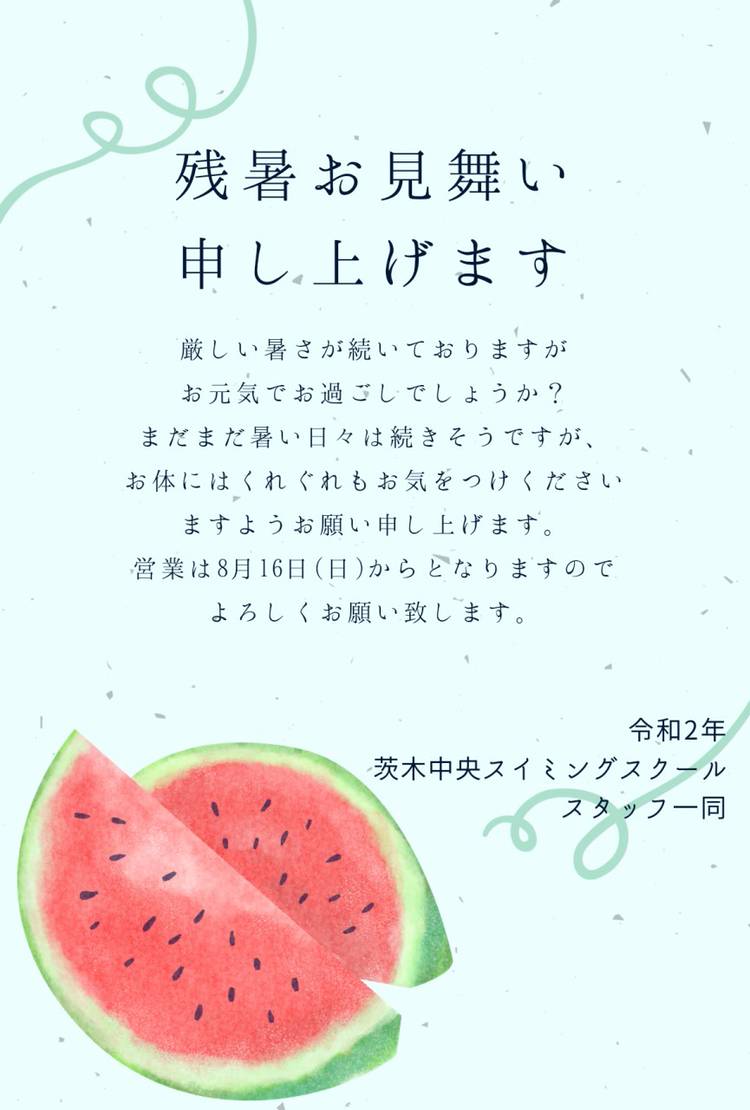 残暑お見舞い
申し上げます
厳しい暑さが続いておりますが
お元気でお過ごしでしょうか？
まだまだ暑い日々は続きそうですが、
お体にはくれぐれもお気をつけください
ますようお願い申し上げます。
営業は8月16日(日)からとなりますので
よろしくお願い致します。
令和2年
茨木中央スイミングスクール
スタッフ一同